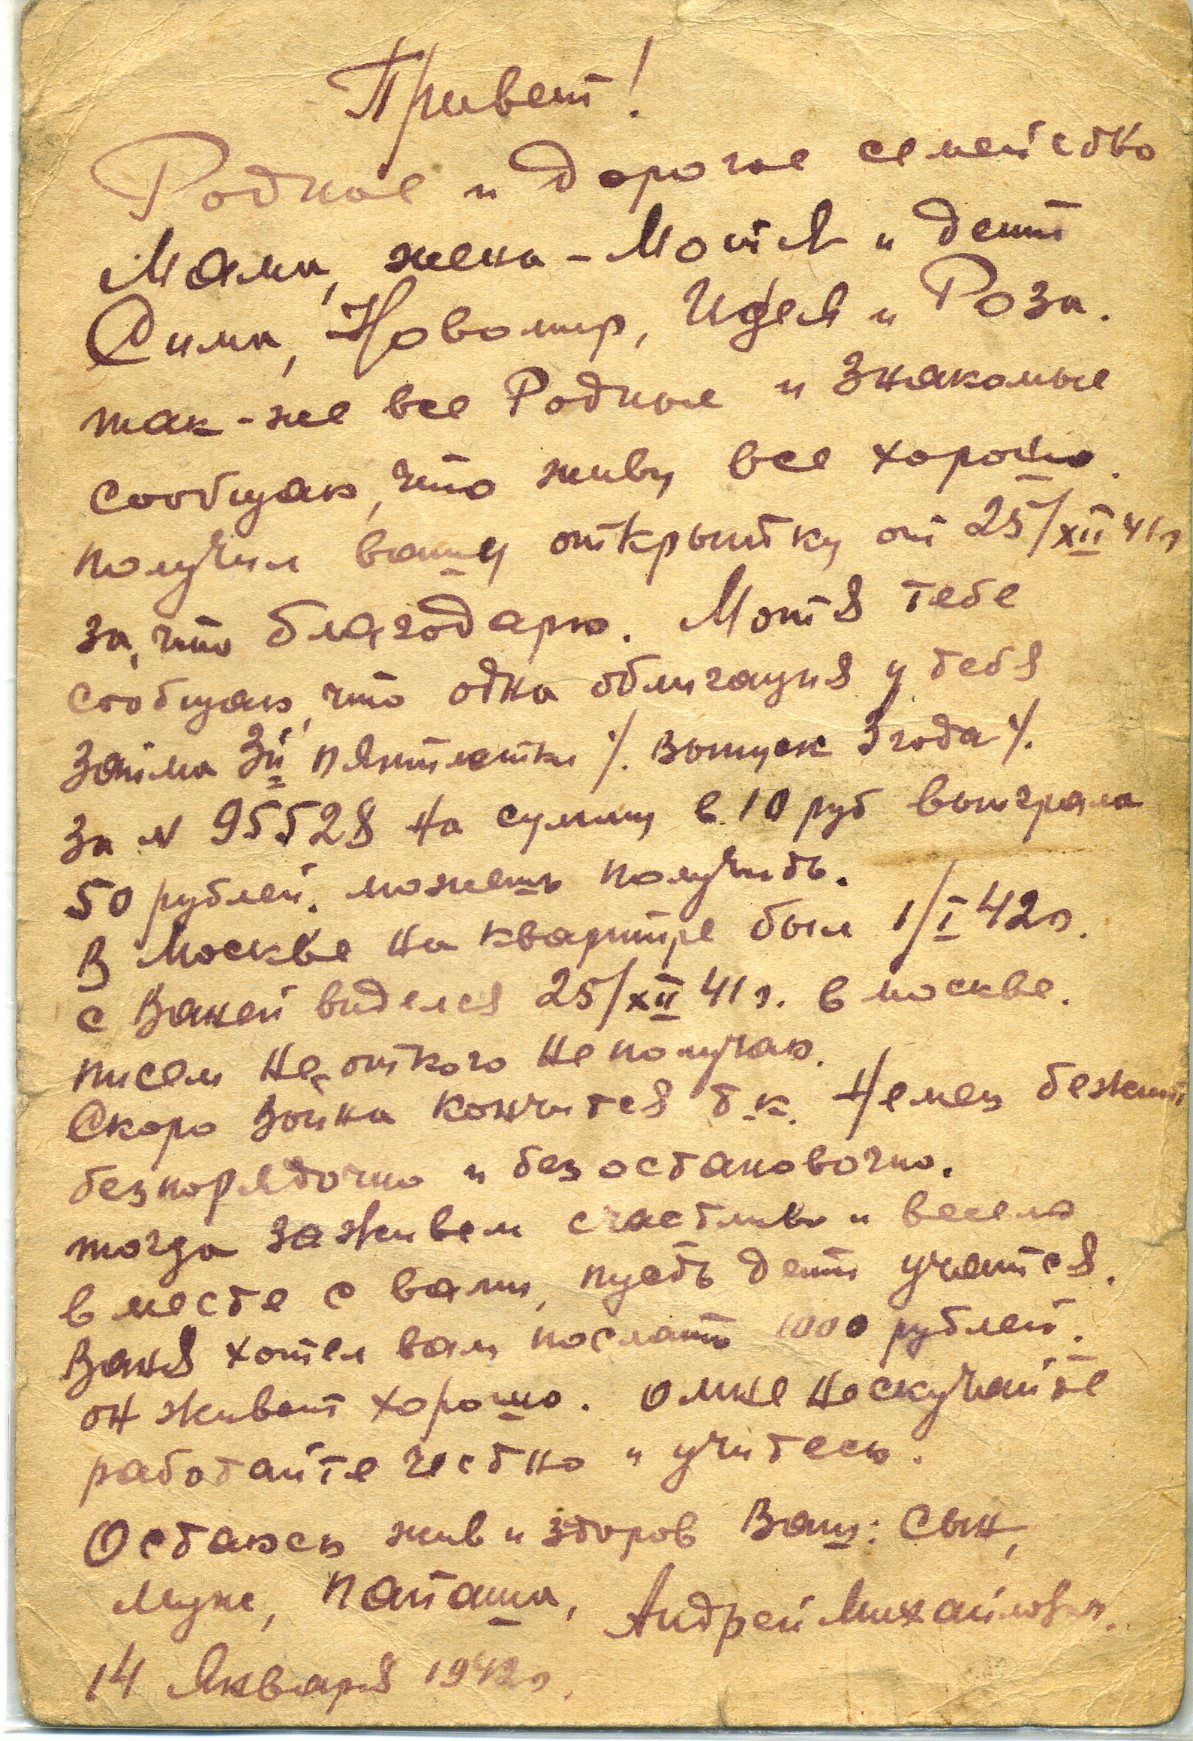 Привет!
Родное и дорогое семейство
Мама, жена - Мотя и дети
Сима, Новомир, Идея и Роза.
так-же все Родные и знакомые
сообщаю, что живу все хорошо.
получил вашу открытку от 25/XII 41г
за, что благодарю. Мотя тебе
сообщаю, что одна облигация у тебя
займа 3й пятилетки /. выпуск 3 года /.
за N 95528 на сумму в 10 руб выиграла
50 рублей. можешь получить.
В Москве на квартире был 1/I 42г.
с Ваней виделся 25/XII 41г. в москве.
писем не откого не получаю.
Скоро Война кончится т.к. Немец бежит
безпорядочно и без остановочно.
тогда заживем счастливо и весело
вместе с вами, пусть дети учатся.
Ваня хотел вам послать 1000 рублей.
он живет хорошо. о мне не скучайте
работайте честно и учитесь.
Остаюсь жив и здоров Ваш: сын,
муж, папаша, Андрей Михайлович.
14 Января 1942г.